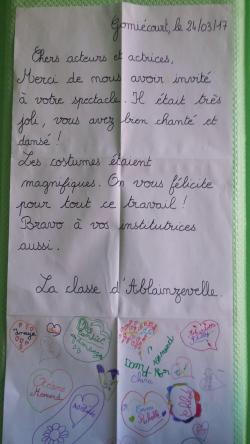 Gomiécourt, le 24/03/17
Chers acteurs et actrices,
Merci de nous avoir invité
à votre spectacle. Il était très
joli, vous avez bien chanté et
dansé !
Les costumes étaient
magnifiques. On vous félicite
pour tout ce travail !
Bravo à vos institutrices
aussi.
La classe d'Ablainzevelle.